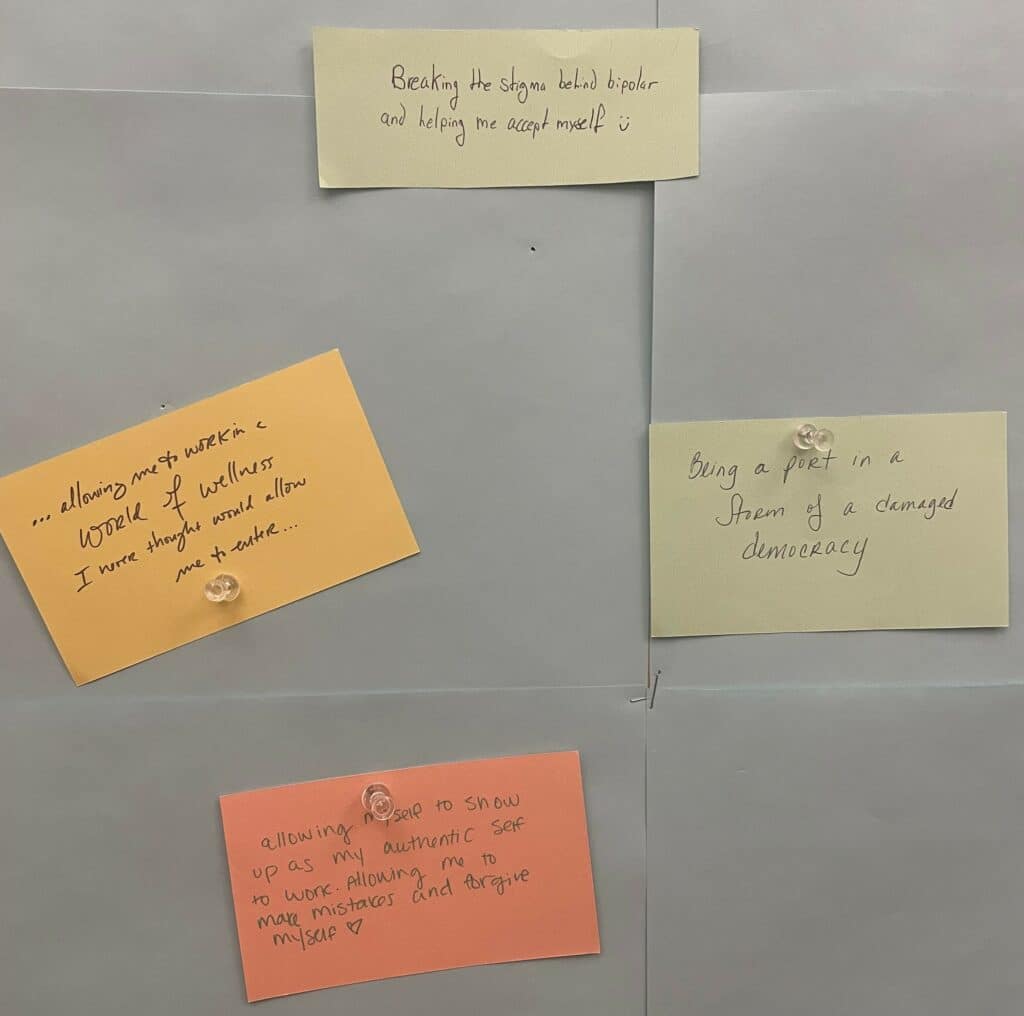 Breaking the stigma behind bipolar
and helping me accept myself ü
... allowing me to work in a
world of wellness
I never thought would allow
me to enter...
Being a port in a
storm of a damaged
democracy
allowing myself to show
up as my authentic self
to work. Allowing me to
make mistakes and forgive
myself ♡